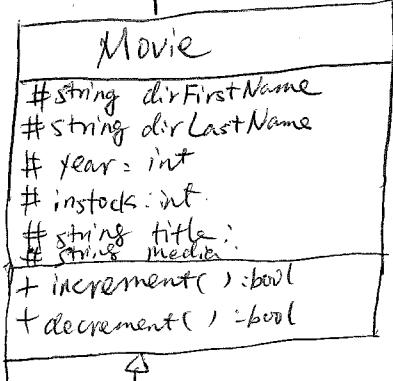 Movie
# string dirFirstName
# string dirLastName
# year: int
# instock: int
# string title;
# string media
+ increment( ) : bool
+ decrement( ) : bool